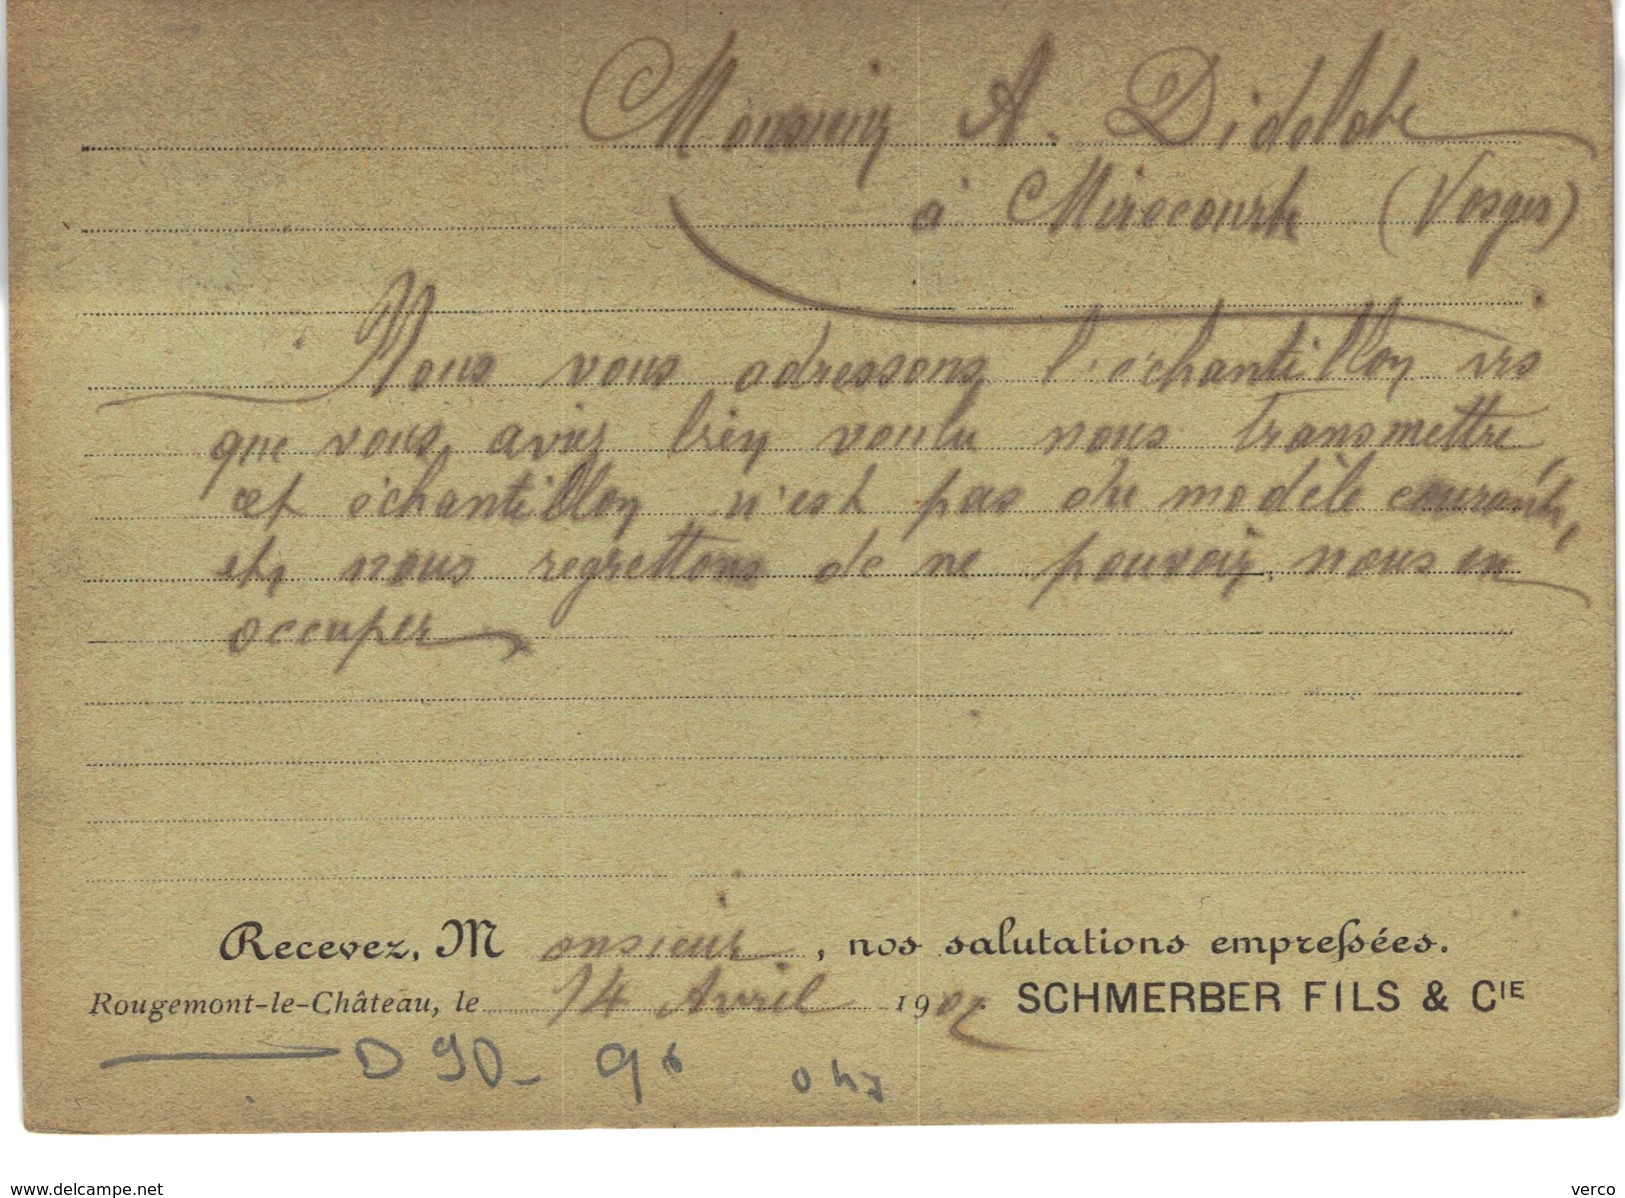 Monsieur A. Didelot
à Mirecourt (Vosges)
Nous vous adressons l'échantillon vis
que vous aviez bien voulu nous transmettre
cet échantillon n'est pas du modèle courant,
et nous regrettons de ne pouvoir nous en
occuper
Recevez, Monsieur, nos salutations empressées.
Rougemont-le-Château, le 14 Avril 1907 SCHMERBER FILS & CIE
D 90 - 96
www.delcampe.net verco